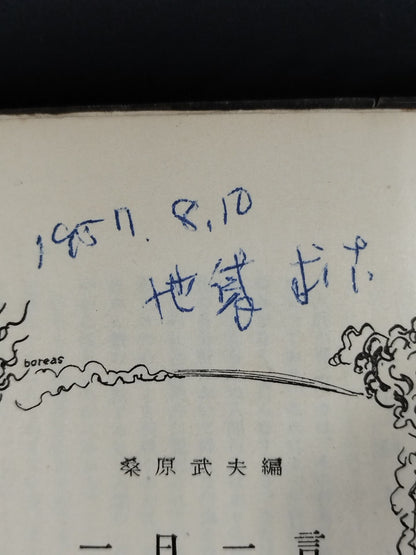 1957. 8.10
地蔵
boreas
桑原武夫編
一日一言